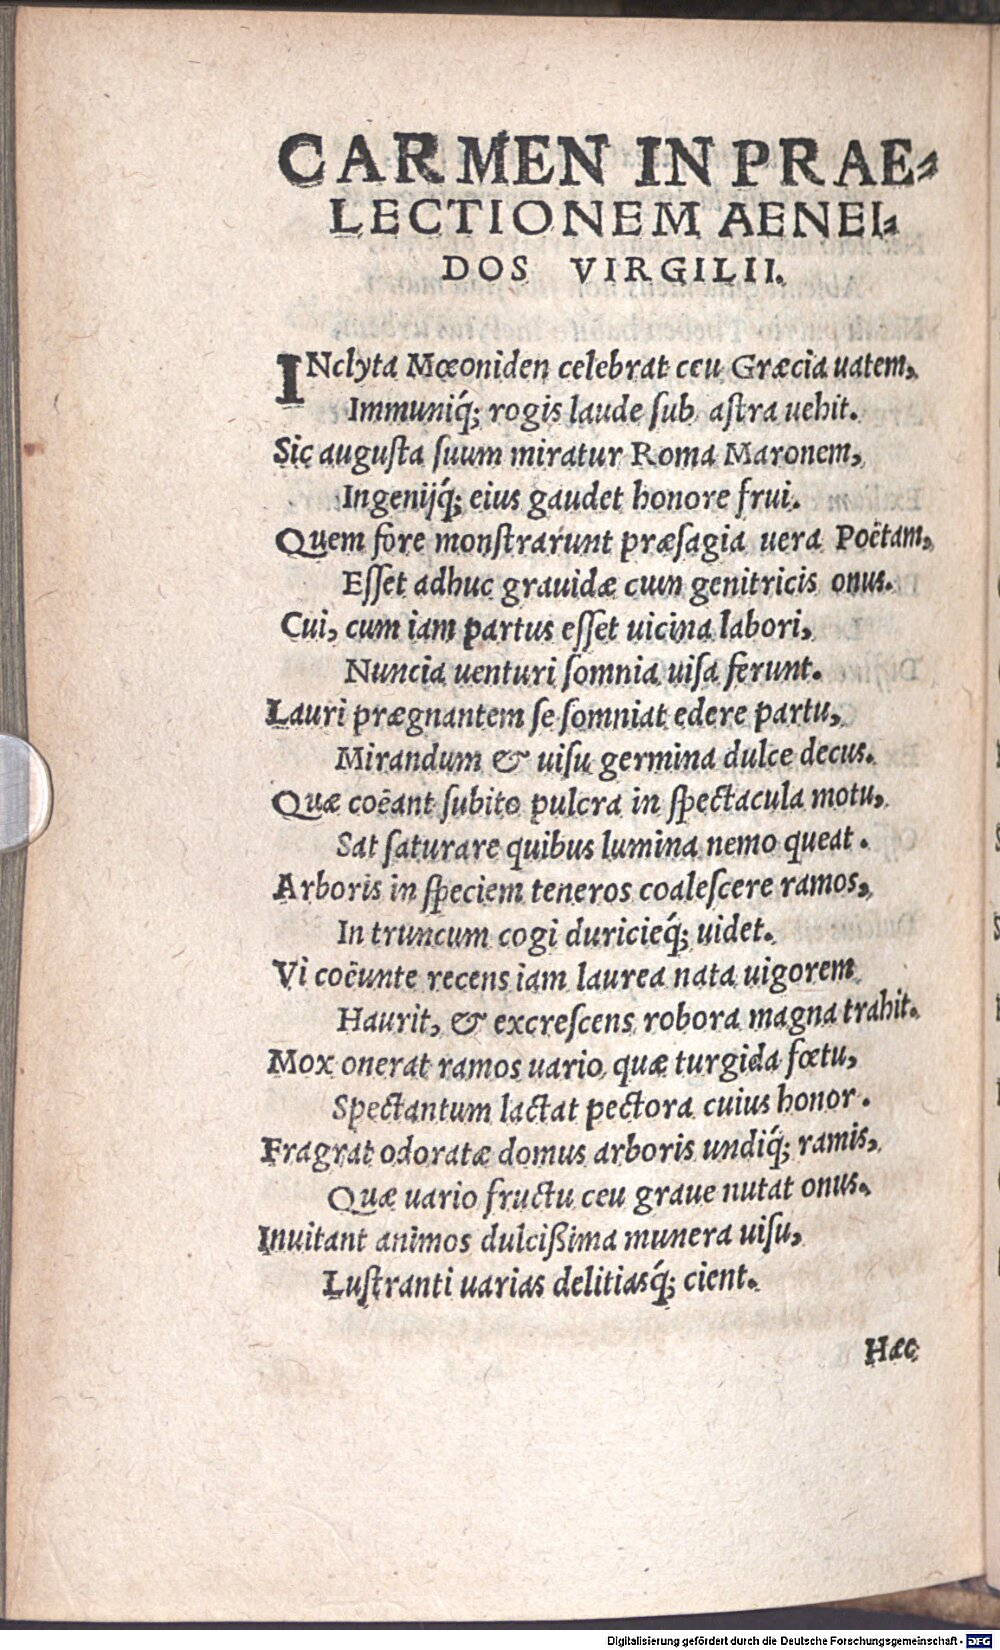 CARMEN IN PRAE⸗
LECTIONEM AENEI⸗
DOS VIRGILII.
INclyta Mœoniden celebrat ceu Græcia uatem,
Immuniq́; rogis laude ſub aſtra uehit.
Sic auguſta ſuum miratur Roma Maronem,
Ingenijq́; eius gaudet honore frui.
Quem fore monſtrarunt præſagia uera Poëtam,
Eſſet adhuc grauidæ cum genitricis onus.
Cui, cum iam partus eſſet uicina labori,
Nuncia uenturi ſomnia uiſa ferunt.
Lauri prægnantem ſe ſomniat edere partu,
Mirandum & uiſu germina dulce decus.
Quæ coëant ſubito pulcra in ſpectacula motu,
Sat ſaturare quibus lumina nemo queat.
Arboris in ſpeciem teneros coaleſcere ramos,
In truncum cogi duricieq́; uidet.
Vi coëunte recens iam laurea nata uigorem
Haurit, & excreſcens robora magna trahit.
Mox onerat ramos uario quæ turgida fœtu,
Spectantum lactat pectora cuius honor.
Fragrat odoratæ domus arboris undiq́; ramis,
Quæ uario fructu ceu graue nutat onus.
Inuitant animos dulcißima munera uiſu,
Luſtranti uarias delitiasq́; cient.
Hæc
Digitalisierung gefördert durch die Deutsche Forschungsgemeinschaft - DFG